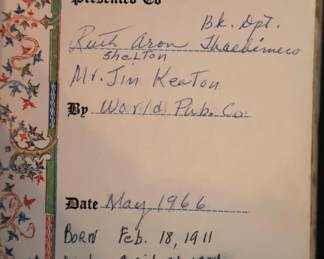 Presented To
Bk. Dpt.
Ruth Aron Thalhimers
Shelton
Mr. Jim Keaton
By World Pub. Co.
Date May 1966
BORN Feb. 18, 1911